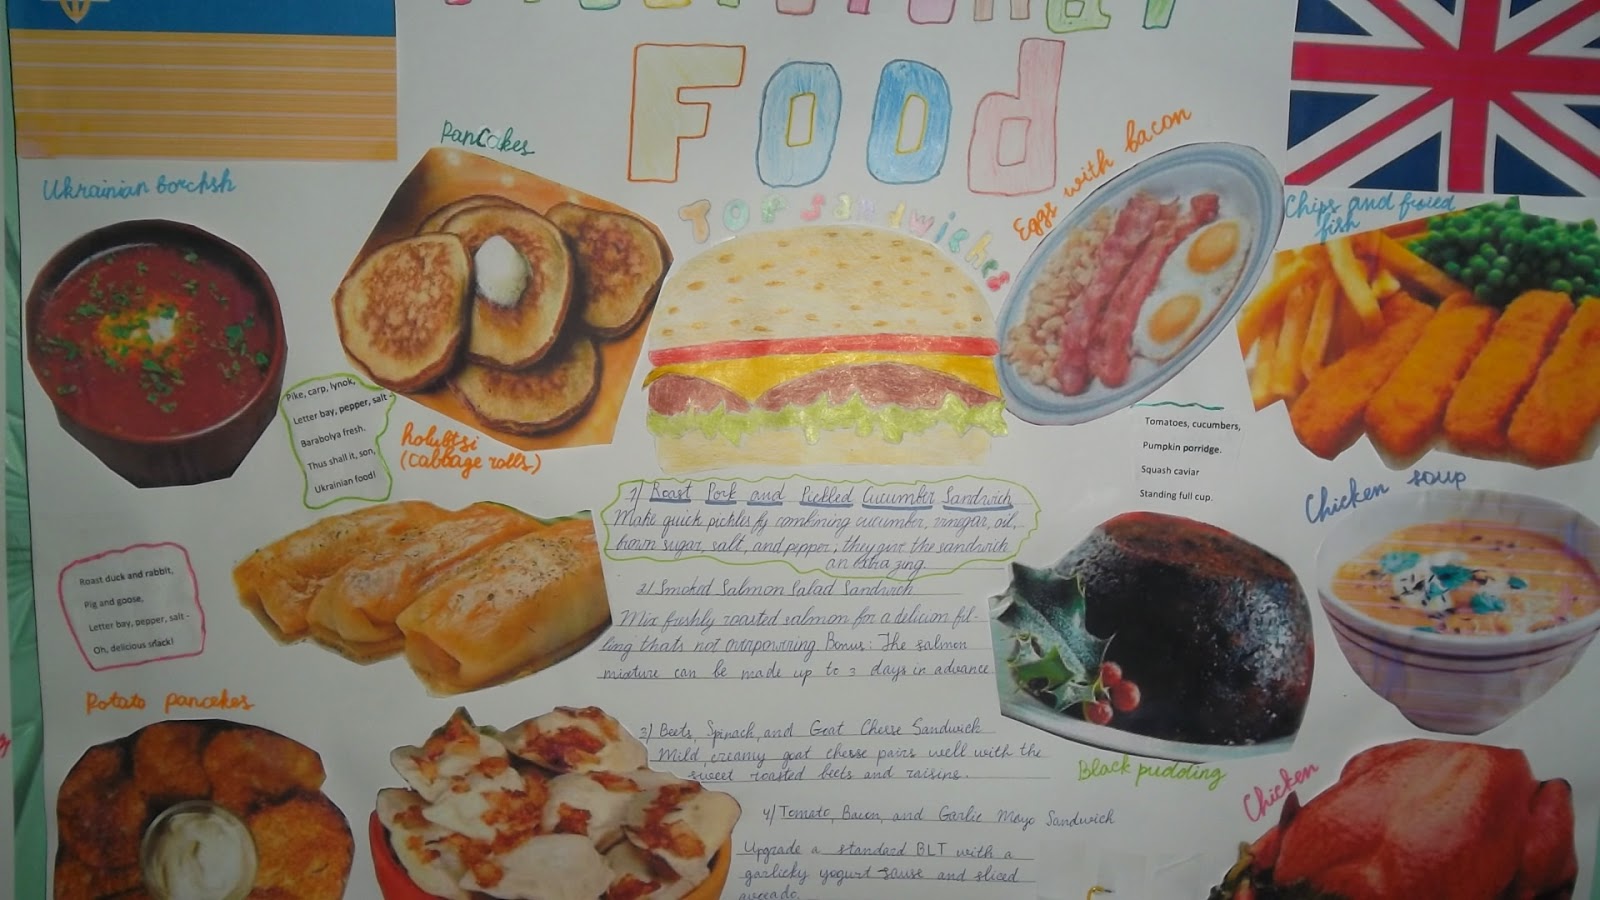 FOOd
Top Sandwiches
Ukrainian borchsh
Pancakes
Eggs with bacon
Chips and fried
fish
Pike, carp, lynok,
Letter bay, pepper, salt -
Barabolya fresh.
Thus shall it, son,
Ukrainian food!
holubtsi
(cabbage rolls)
Tomatoes, cucumbers,
Pumpkin porridge.
Squash caviar
Standing full cup.
Chicken soup
1) Roast Pork and Pickled Cucumber Sandwich
Make quick pickles by combining cucumber, vinegar, oil,
brown sugar, salt, and pepper; they give the sandwich
an extra zing.
2) Smoked Salmon Salad Sandwich
Mix freshly roasted salmon for a delicion fil-
ling thats not overpowering. Bonus: The salmon
mixture can be made up to 3 days in advance
Roast duck and rabbit,
Pig and goose,
Letter bay, pepper, salt -
Oh, delicious snack!
Potato pancekes
3) Beets, Spinack, and Goat Cheese Sandwick
Mild, creamy goat cheese pairs well with the
sweet roasted beets and raisins.
Black pudding
Chicken
4) Tomato, Bacon, and Garlic Mayo Sandwich
Upgrade a standard BLT with a
garlicky yogurt sause and sliced
avocado.